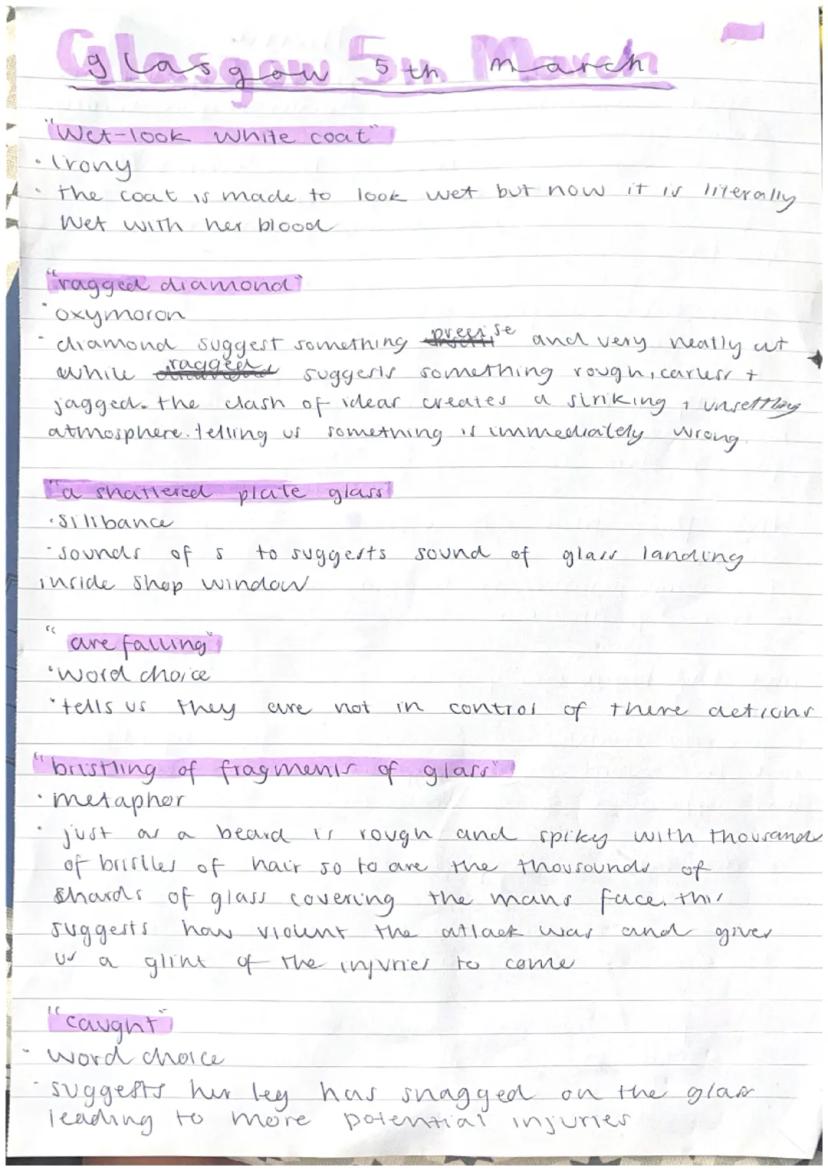 Glasgow 5th March
"Wet-look white coat"
· Irony
· the coat is made to look wet but now it is literally
wet with her blood
"ragged diamond"
· oxymoron
· diamond suggest something precise and very neatly cut
while ragged suggests something rough, carless +
jagged. the clash of ideas creates a striking + unsettling
atmosphere. telling us something is immediately wrong.
"a shattered plate glass"
· Silibance
· sounds of s to suggests sound of glass landing
inside shop window
"are falling"
· word choice
· tells us they are not in control of there actions
"bristling of fragments of glass"
· metaphor
· just as a beard is rough and spiky with thousands
of bristles of hair so to are the thousounds of
shards of glass covering the mans face. this
suggests how violent the attack was and gives
us a glint of the injuries to come
"caught"
· word choice
· suggests her leg has snagged on the glass
leading to more potential injuries